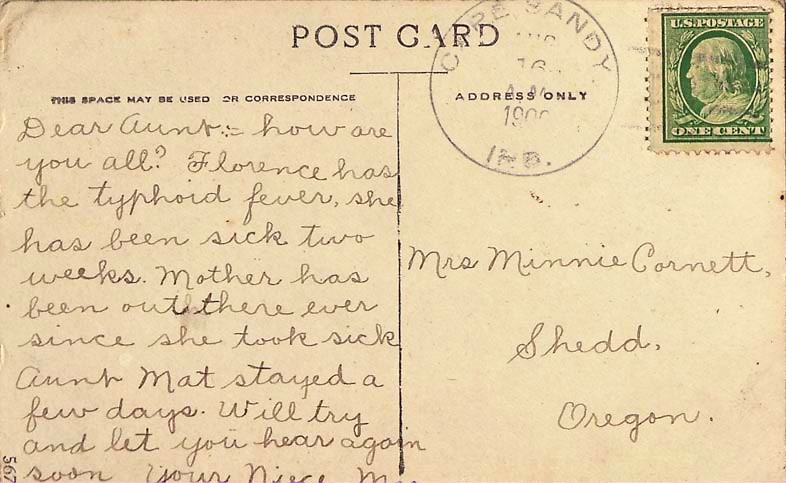 POST CARD
THIS SPACE MAY BE USED OR CORRESPONDENCE
ADDRESS ONLY
CAPE SANDY
AUG
16
A.M.
IND.
U.S. POSTAGE
ONE CENT
Dear Aunt:- how are
you all? Florence has
the typhoid fever, she
has been sick two
weeks. Mother has
been out there ever
since she took sick
Aunt Mat stayed a
few days. Will try
and let you hear again
soon Your Niece
Mrs Minnie Cornett,
Shedd,
Oregon.
567